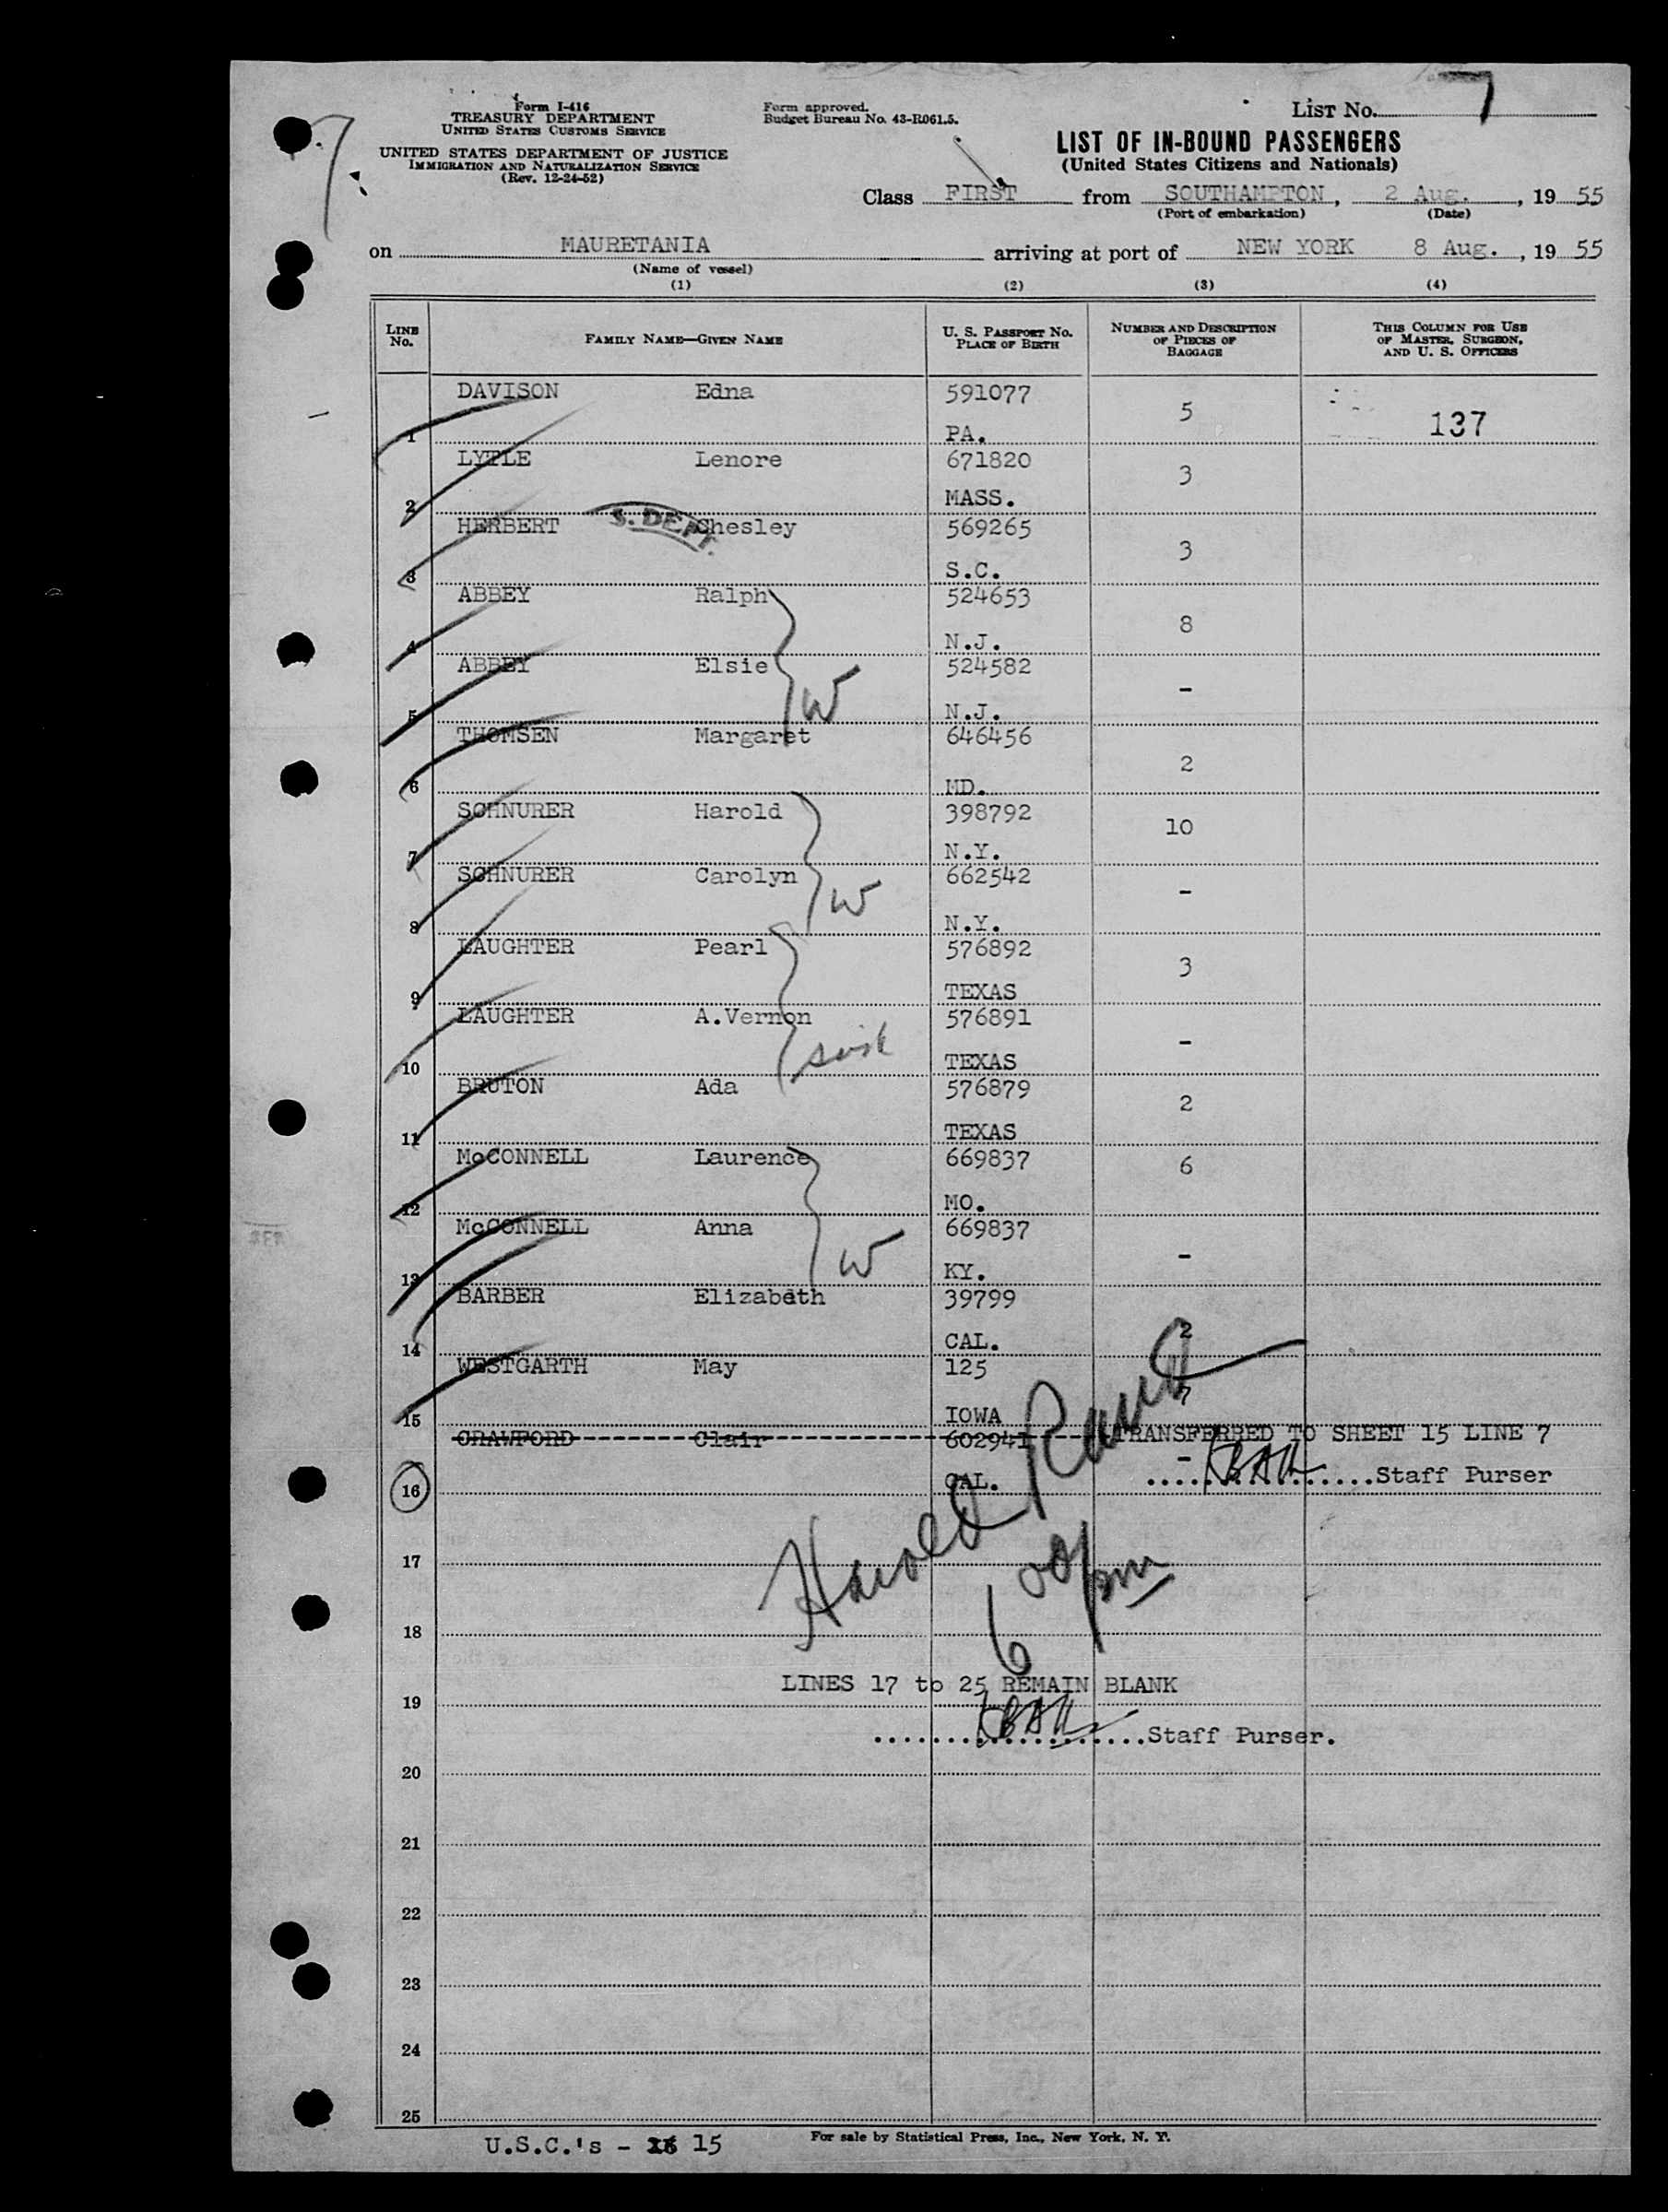 7
7
Form I-416
TREASURY DEPARTMENT
UNITED STATES CUSTOMS SERVICE
UNITED STATES DEPARTMENT OF JUSTICE
IMMIGRATION AND NATURALIZATION SERVICE
(Rev. 12-24-52)
Form approved.
Budget Bureau No. 43-R061.5.
LIST No.
LIST OF IN-BOUND PASSENGERS
(United States Citizens and Nationals)
Class FIRST from SOUTHAMPTON, 2 Aug., 19 55
(Port of embarkation) (Date)
on MAURETANIA arriving at port of NEW YORK 8 Aug., 19 55
(Name of vessel)
(1) (2) (3) (4)
LINE No. FAMILY NAME—GIVEN NAME U. S. PASSPORT No. PLACE OF BIRTH NUMBER AND DESCRIPTION OF PIECES OF BAGGAGE THIS COLUMN FOR USE OF MASTER, SURGEON, AND U. S. OFFICERS
DAVISON Edna 591077 5 137
1 PA.
LYTLE Lenore 671820 3
2 MASS.
S. DEPT.
HERBERT Chesley 569265 3
3 S.C.
ABBEY Ralph 524653 8
4 N.J.
ABBEY Elsie W 524582 -
5 N.J.
THOMSEN Margaret 646456 2
6 MD.
SCHNURER Harold 398792 10
7 N.Y.
SCHNURER Carolyn W 662542 -
8 N.Y.
LAUGHTER Pearl 576892 3
9 TEXAS
LAUGHTER A.Vernon 576891 -
10 TEXAS
BRUTON Ada 576879 2
11 TEXAS
McCONNELL Laurence 669837 6
12 MO.
McCONNELL Anna W 669837 -
13 KY.
BARBER Elizabeth 39799 2
14 CAL.
WESTGARTH May 125 7
15 IOWA
CRAWFORD Clair 602941 TRANSFERRED TO SHEET 15 LINE 7
16 CAL. - Staff Purser
17
Harold
6 00/pm
18
LINES 17 to 25 REMAIN BLANK
19
Staff Purser.
20
21
22
23
24
25
U.S.C.'s - 15
For sale by Statistical Press, Inc., New York, N. Y.